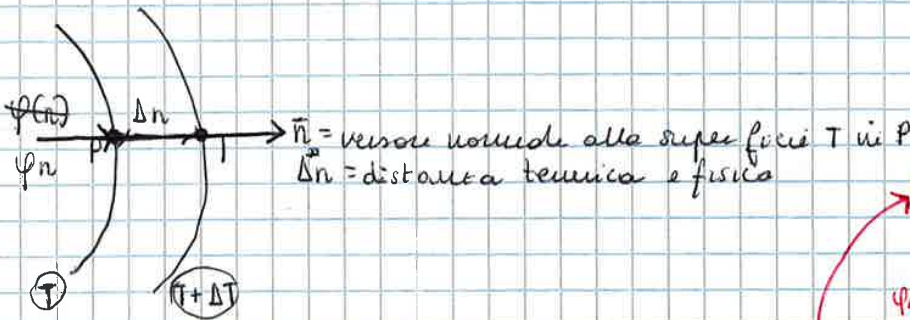 φ(n) Δn
φn P n̄ = versore normale alla superficie T in P
Δn = distanza termica e fisica
T T+ΔT